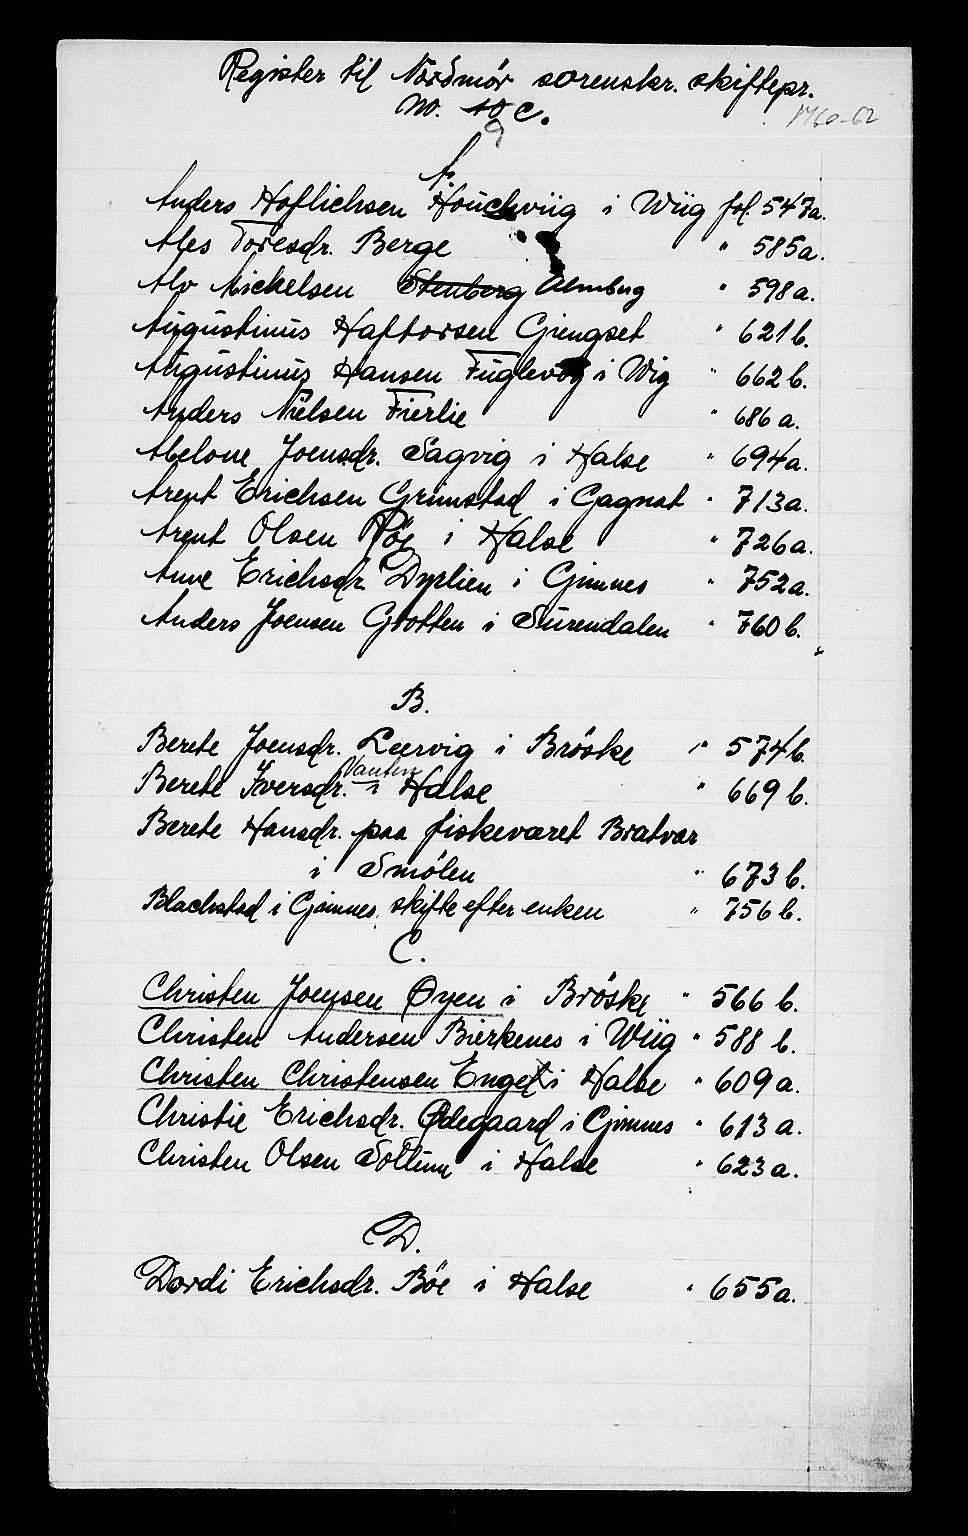 Register til Nordmør sorenskr. skiftepr.
No. 10 C.
9
1760-62
A.
Anders Hoflichsen Houchviig i Wiig fol. 547a.
Ales Toresdr. Berge " 585a.
Alv Mickelsen Stenberg Almbug " 598a.
Augustinus Haftorsen Giengset " 621b.
Augustinus Hansen Fuglevog i Wig " 662b.
Anders Nielsen Fierlie " 686a.
Abelone Joensdr. Sagvig i Halse " 694a.
Arent Erichsen Grimstad i Gagnat " 713a.
Arent Olsen Røe i Halse " 726a.
Anne Erichsdr. Dyrlien i Gimnes " 752a.
Anders Joensen Grotten i Surendalen " 760b.
B.
Berete Joensdr. Leervig i Brøske " 574b.
Vanten
Berete Iversdr. i Halse " 669b.
Berete Hansdr. paa fiskeværet Bratvær
i Smølen " 673b.
Blachstad i Gimnes, skifte efter enken " 756b.
C.
Christen Joensen Øyen i Brøske " 566b.
Christen Andersen Bierkenes i Wiig " 588b.
Christen Christensen Enget i Halse " 609a.
Christie Erichsdr. Ødegaard i Gimnes " 613a.
Christen Olsen Sollum i Halse " 623a.
D.
Dordi Erichsdr. Bøe i Halse " 655a.